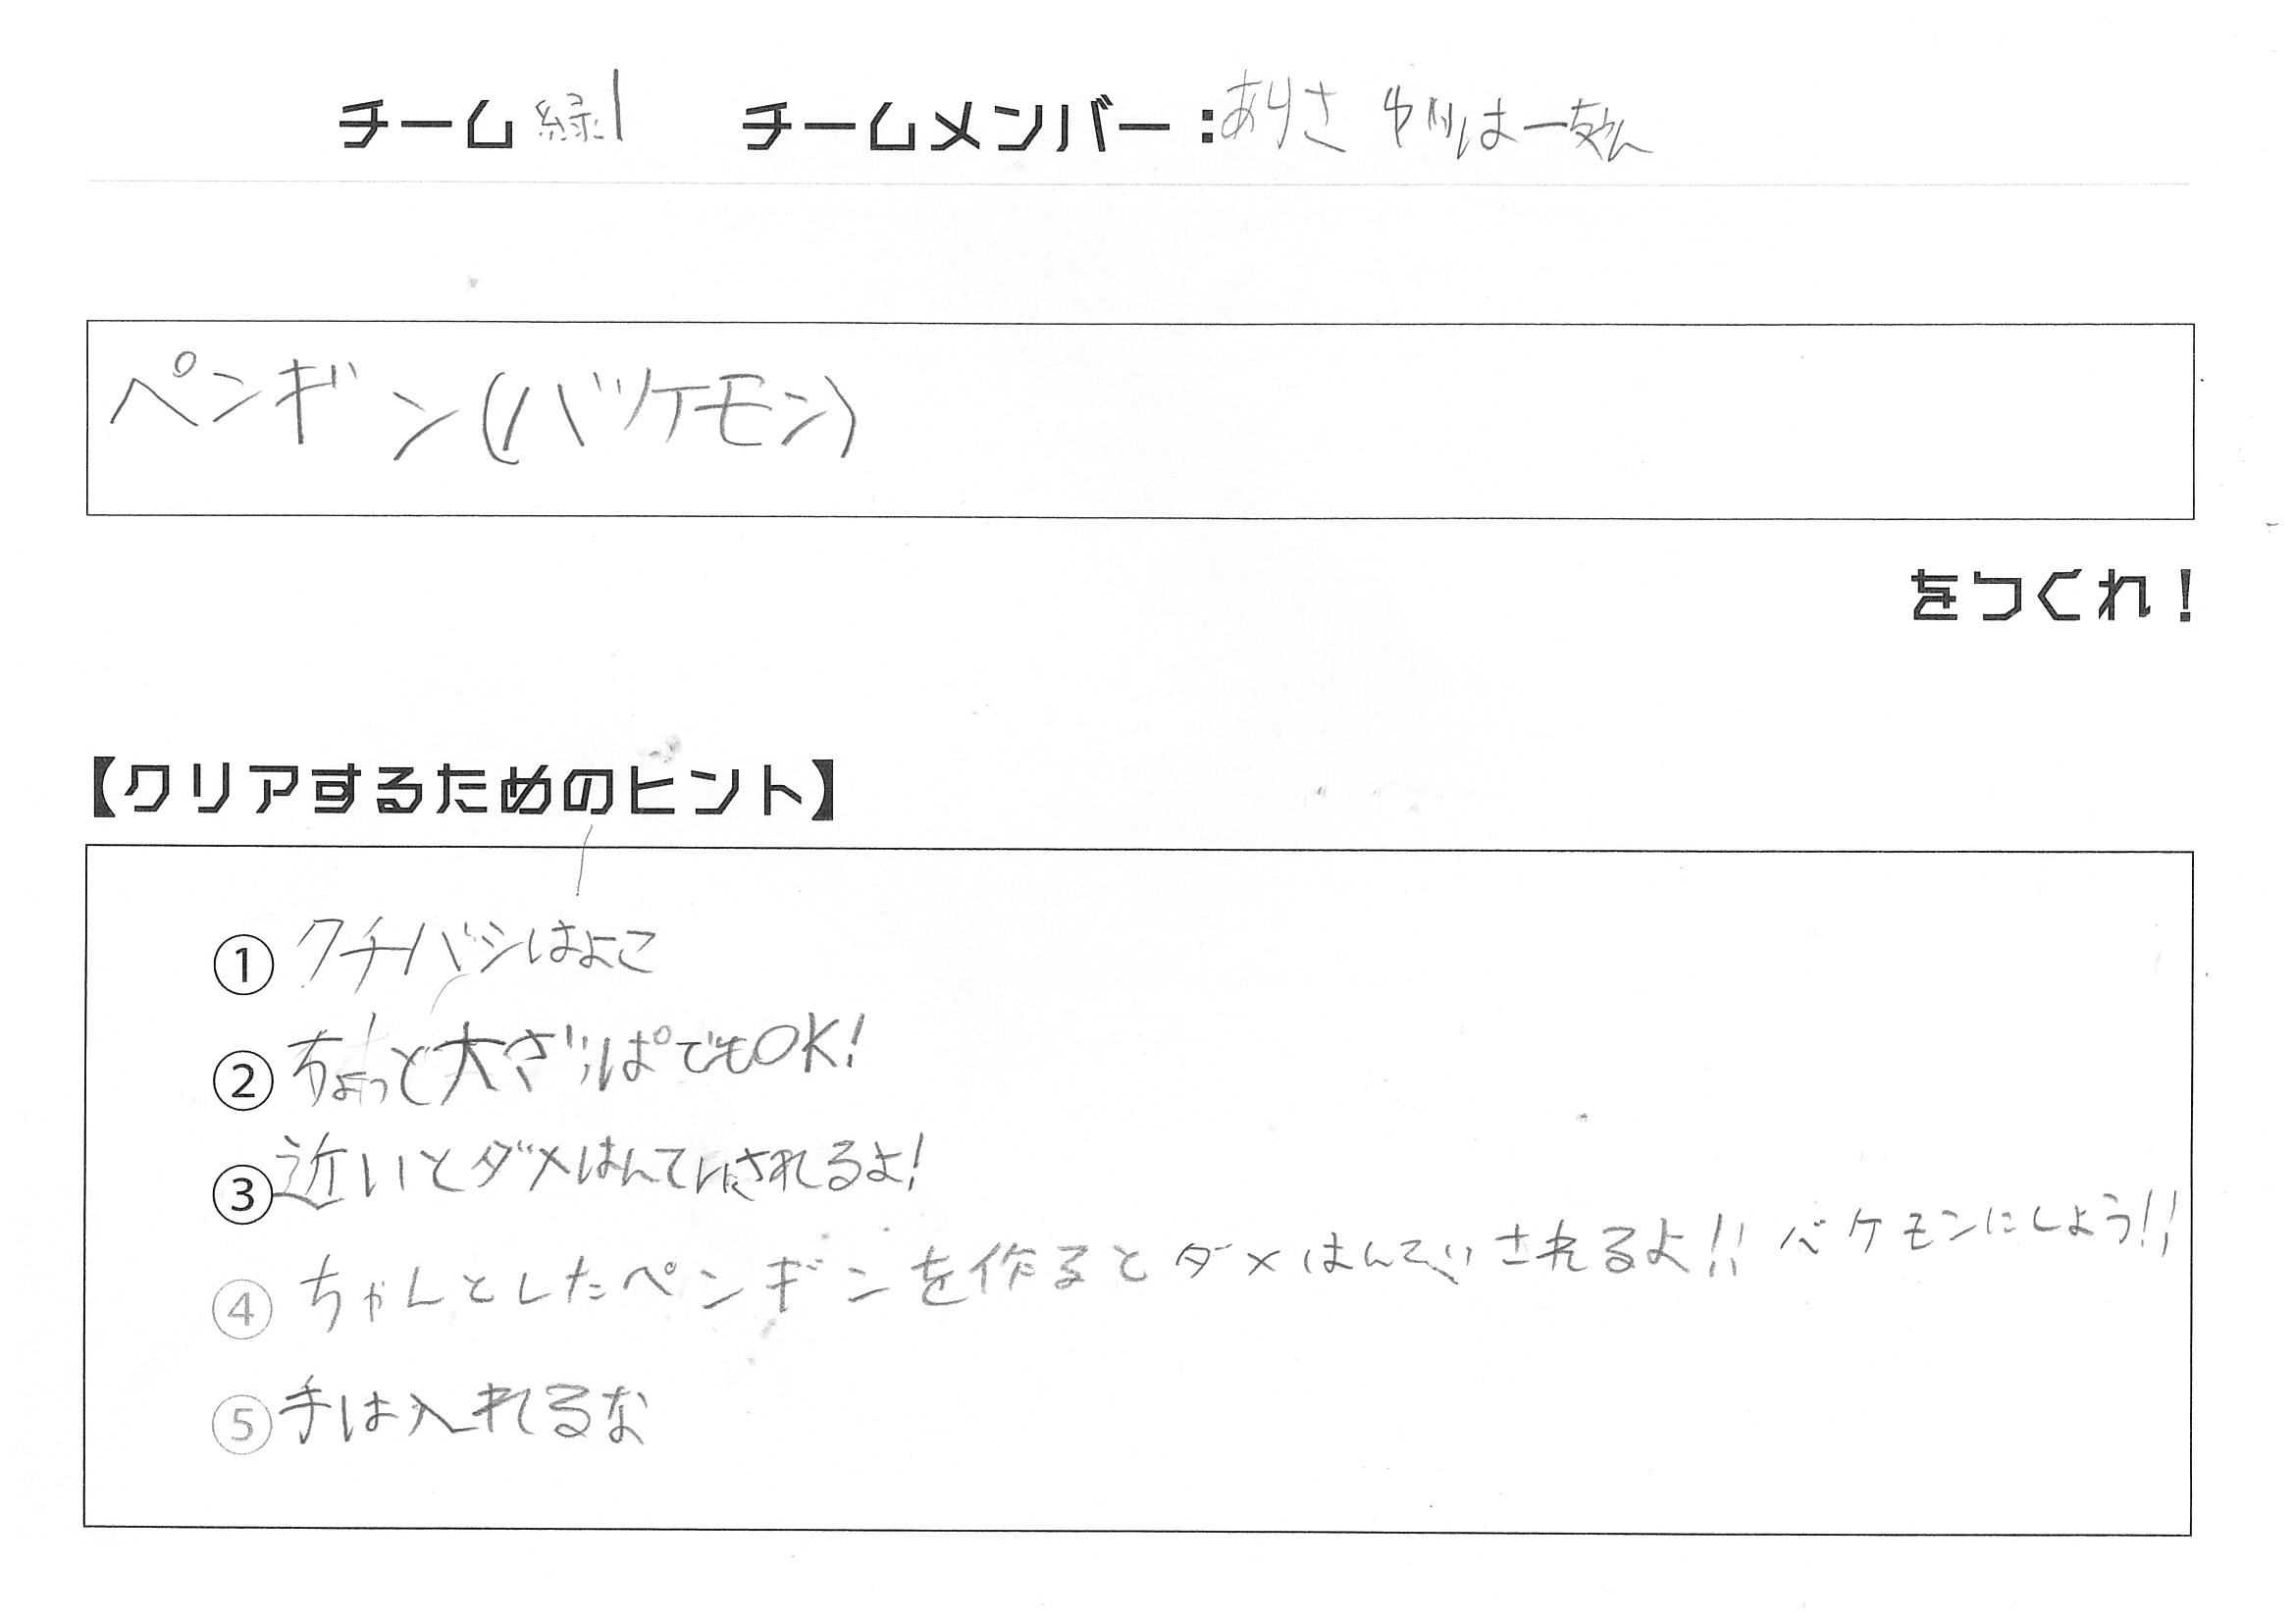 チーム 緑1 チームメンバー:ありさ
ペンギン(バツケモン)
をつくれ!
【クリアするためのヒント】
① クチバシはよこ
② ちょっと大ざっぱでもOK!
③ 近いとダメはんていされるよ!
④ ちゃんとしたペンギンを作るとダメはんていされるよ!! バケモンにしよう!!
⑤ 手は入れるな